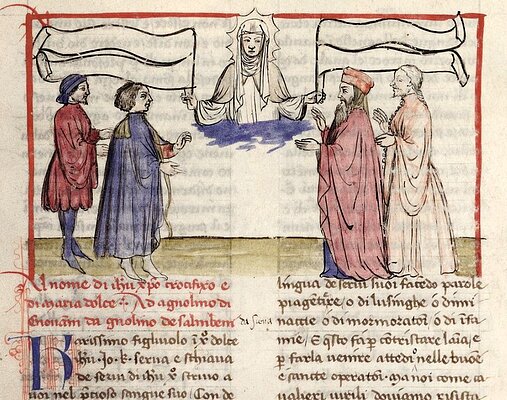 Al nome di ihu xpo crocifixo e
di maria dolce :· Ad agnolino di
Giovani da gnolino de salimbeni
da siena
Karissimo figluolo i xo dolce
ihu. Io .k. serva e schiava
de servi di ihu xpo scrivo a
voi nel ptioso sangue suo. Con de
lingua de servi suoi facedo parole
piagetiere, o di lusinghe o di mi
naccie o di mormoratoi o di ifa
mie. E qsto fa p cotristare laia, e
p farla venire nelle buoe
e sancte operatoi. ma noi come ca
valieri virili doviamo